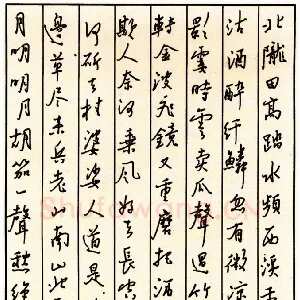 北隴田高踏水頻西溪禾
沽酒醉纤鱗忽有微涼
影霎時雲賣瓜聲過竹
轉金波飛鏡又重磨把酒
欺人奈何乘風好去長空
河斫去桂婆娑人道是
邊草尽来兵老山南山北
月明明月胡笳一聲愁絶